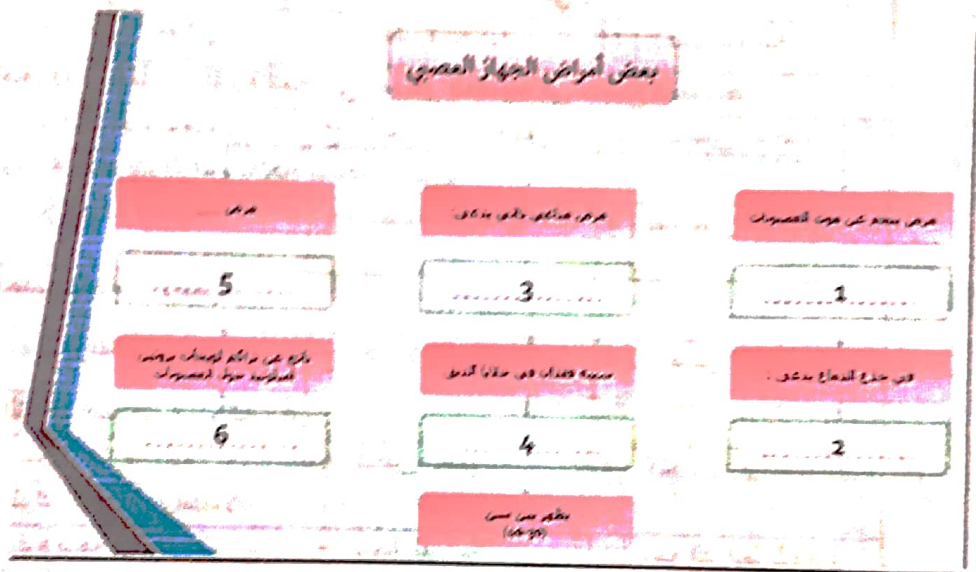 بعض أمراض الجهاز العصبي
مرض ينجم عن موت العصبونات
1
في جذع الدماغ يدعى :
2
مرض مناعي ذاتي يدعى:
3
سببه فقدان في خلايا الدبق
4
يظهر بين سني
مرض
5
ناتج عن تراكم لويحات بروتين
حول العصبونات
6